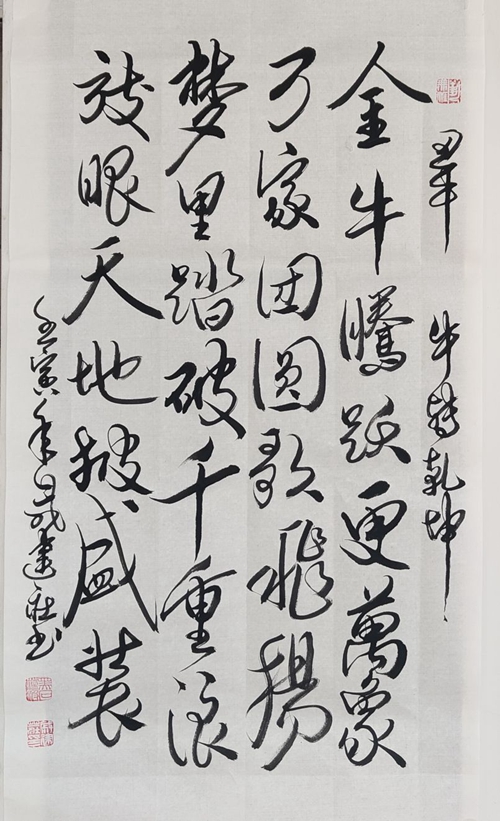 丑年 牛轉乾坤
金牛騰跃更萬象
万家团圆歌飛揚
梦里踏破千重浪
放眼天地披盛装
壬寅年建社书